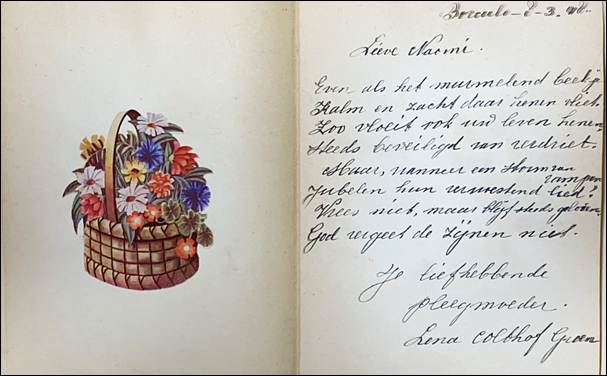 Borculo - 2-3. 42.
Lieve Naomi.
Even als het murmelend beekje
Kalm en zacht daar henen vliet
Zoo vloeit ook uw leven henen
Steeds beveiligd van verdriet.
Maar, wanneer een storm van rampen
Jubelen hun verwoestend lied?
Vrees niet, maar blijf steds gelooven,
God vergeet de Zijnen niet.
Je liefhebbende
pleegmoeder.
Lena Groen